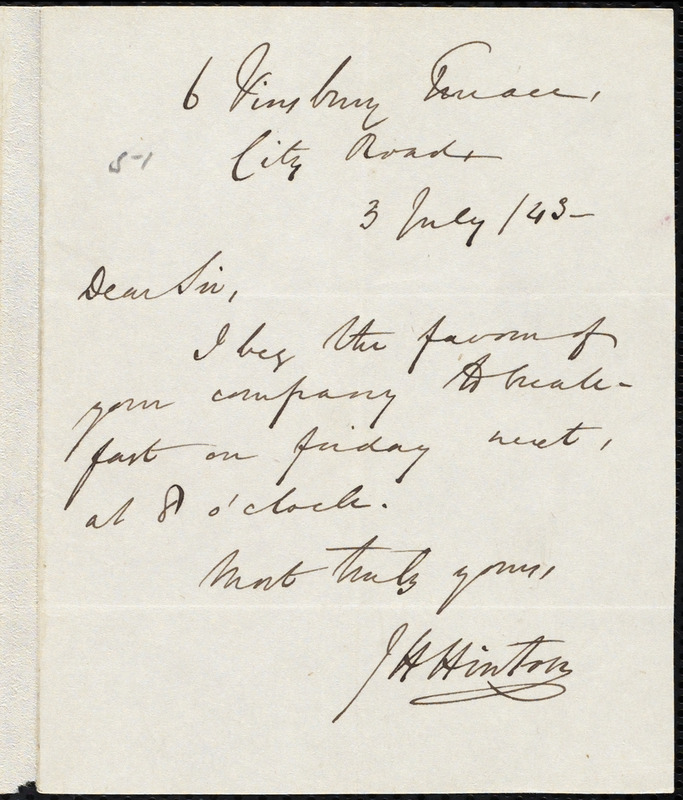 6 Finsbury Terrace,
City Road,
5-1
3 July /43-
Dear Sir,
I beg the favour of
your company to break-
fast on friday next,
at 8 o'clock.
Most truly yours,
J H Hinton